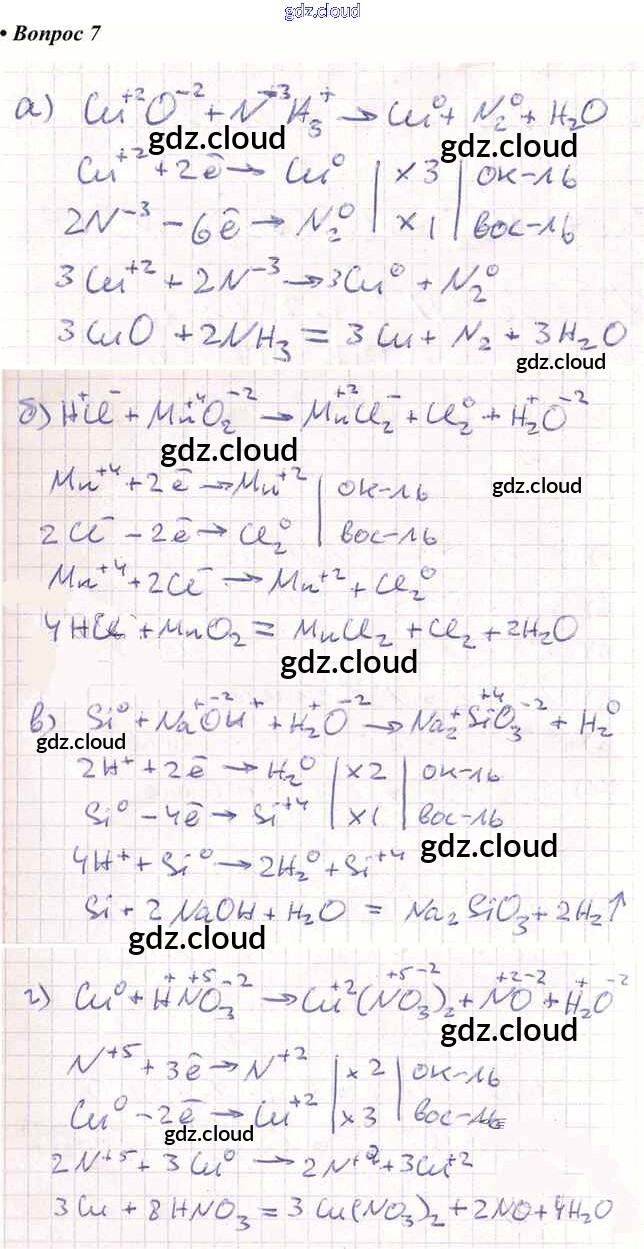 gdz.cloud
• Вопрос 7
а) Cu⁺²O⁻² + N⁻³H₃⁺ → Cu⁰ + N₂⁰ + H₂O
gdz.cloud
gdz.cloud
Cu⁺² + 2ē → Cu⁰ | ×3 | ок-ль
2N⁻³ − 6ē → N₂⁰ | ×1 | вос-ль
3Cu⁺² + 2N⁻³ → 3Cu⁰ + N₂⁰
3CuO + 2NH₃ = 3Cu + N₂ + 3H₂O
gdz.cloud
б) H⁺Cl⁻ + Mn⁺⁴O₂⁻² → Mn⁺²Cl₂⁻ + Cl₂⁰ + H₂⁺O⁻²
gdz.cloud
Mn⁺⁴ + 2ē → Mn⁺² | ок-ль
gdz.cloud
2Cl⁻ − 2ē → Cl₂⁰ | вос-ль
Mn⁺⁴ + 2Cl⁻ → Mn⁺² + Cl₂⁰
4HCl + MnO₂ = MnCl₂ + Cl₂ + 2H₂O
gdz.cloud
в) Si⁰ + Na⁺O⁻²H⁺ + H₂⁺O⁻² → Na₂⁺Si⁺⁴O₃⁻² + H₂⁰
gdz.cloud
2H⁺ + 2ē → H₂⁰ | ×2 | ок-ль
Si⁰ − 4ē → Si⁺⁴ | ×1 | вос-ль
gdz.cloud
4H⁺ + Si⁰ → 2H₂⁰ + Si⁺⁴
Si + 2NaOH + H₂O = Na₂SiO₃ + 2H₂↑
gdz.cloud
г) Cu⁰ + H⁺N⁺⁵O₃⁻² → Cu⁺²(N⁺⁵O₃⁻²)₂ + N⁺²O⁻² + H₂⁺O⁻²
gdz.cloud
N⁺⁵ + 3ē → N⁺² | ×2 | ок-ль
Cu⁰ − 2ē → Cu⁺² | ×3 | вос-ль
gdz.cloud
2N⁺⁵ + 3Cu⁰ → 2N⁺² + 3Cu⁺²
3Cu + 8HNO₃ = 3Cu(NO₃)₂ + 2NO + 4H₂O